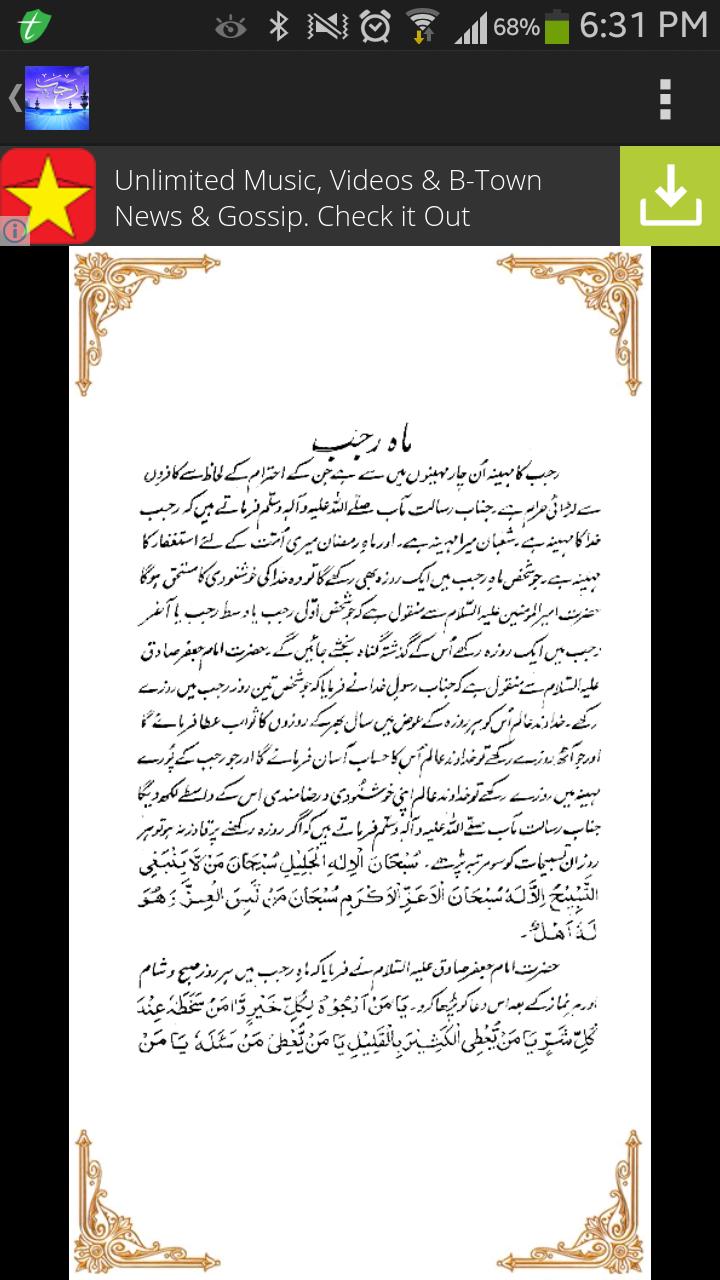 68% 6:31 PM
رجب
Unlimited Music, Videos & B-Town
News & Gossip. Check it Out
ماہ رجب
رجب کا مہینہ اُن چار مہینوں میں سے ہے جن کے احترام کے لحاظ سے کافروں
سے لڑائی حرام ہے۔ جناب رسالت مآب صلے اللہ علیہ وآلہ وسلّم فرماتے ہیں کہ رجب
خدا کا مہینہ ہے۔ شعبان میرا مہینہ ہے۔ اور ماہِ رمضان میری اُمت کے لئے استغفار کا
مہینہ ہے۔ جو شخص ماہِ رجب میں ایک روزہ بھی رکھے گا تو وہ خدا کی خوشنودی کا مستحق ہوگا
حضرت امیر المومنین علیہ السّلام سے منقول ہے کہ جو شخص اوّل رجب یا وسط رجب یا آخر
رجب میں ایک روزہ رکھے اُس کے گذشتہ گناہ بخشے جائیں گے۔ حضرت امام جعفر صادق
علیہ السّلام سے منقول ہے کہ جناب رسول خدا نے فرمایا کہ جو شخص تین روز رجب میں روزے
رکھے۔ خداوند عالم اُس کو ہر روزہ کے عوض میں سال بھر کے روزوں کا ثواب عطا فرمائے گا
اور جو آٹھ روزے رکھے تو خداوند عالم اُس کا حساب آسان فرمائے گا اور جو رجب کے پُورے
مہینہ میں روزے رکھے تو خداوند عالم اپنی خوشنودی و رضامندی اس کے واسطے لکھ دیگا
جناب رسالت مآب صلے اللہ علیہ و آلہ وسلّم فرماتے ہیں کہ اگر روزہ رکھنے پر قادر نہ ہو تو ہر
روز ان تسبیحات کو سو مرتبہ پڑھے۔ سُبْحَانَ الْاِلٰہِ الْجَلِیْلِ سُبْحَانَ مَنْ لَا یَنْبَغِی
التَّسْبِیْحُ اِلَّا لَہٗ سُبْحَانَ الْاَعَزِّ الْاَکْرَمِ سُبْحَانَ مَنْ لَبِسَ الْعِزَّ وَھُوَ
لَہٗ اَھْلٌ۔
حضرت امام جعفر صادق علیہ السّلام نے فرمایا کہ ماہِ رجب میں ہر روز صبح و شام
اور ہر نماز کے بعد اس دعا کو پڑھا کرو۔ یَا مَنْ اَرْجُوْہُ لِکُلِّ خَیْرٍ وَّاٰمَنُ سَخَطَہٗ عِنْدَ
کُلِّ شَرٍّ یَا مَنْ یُّعْطِی الْکَثِیْرَ بِالْقَلِیْلِ یَا مَنْ یُّعْطِیْ مَنْ سَئَلَہٗ یَا مَنْ